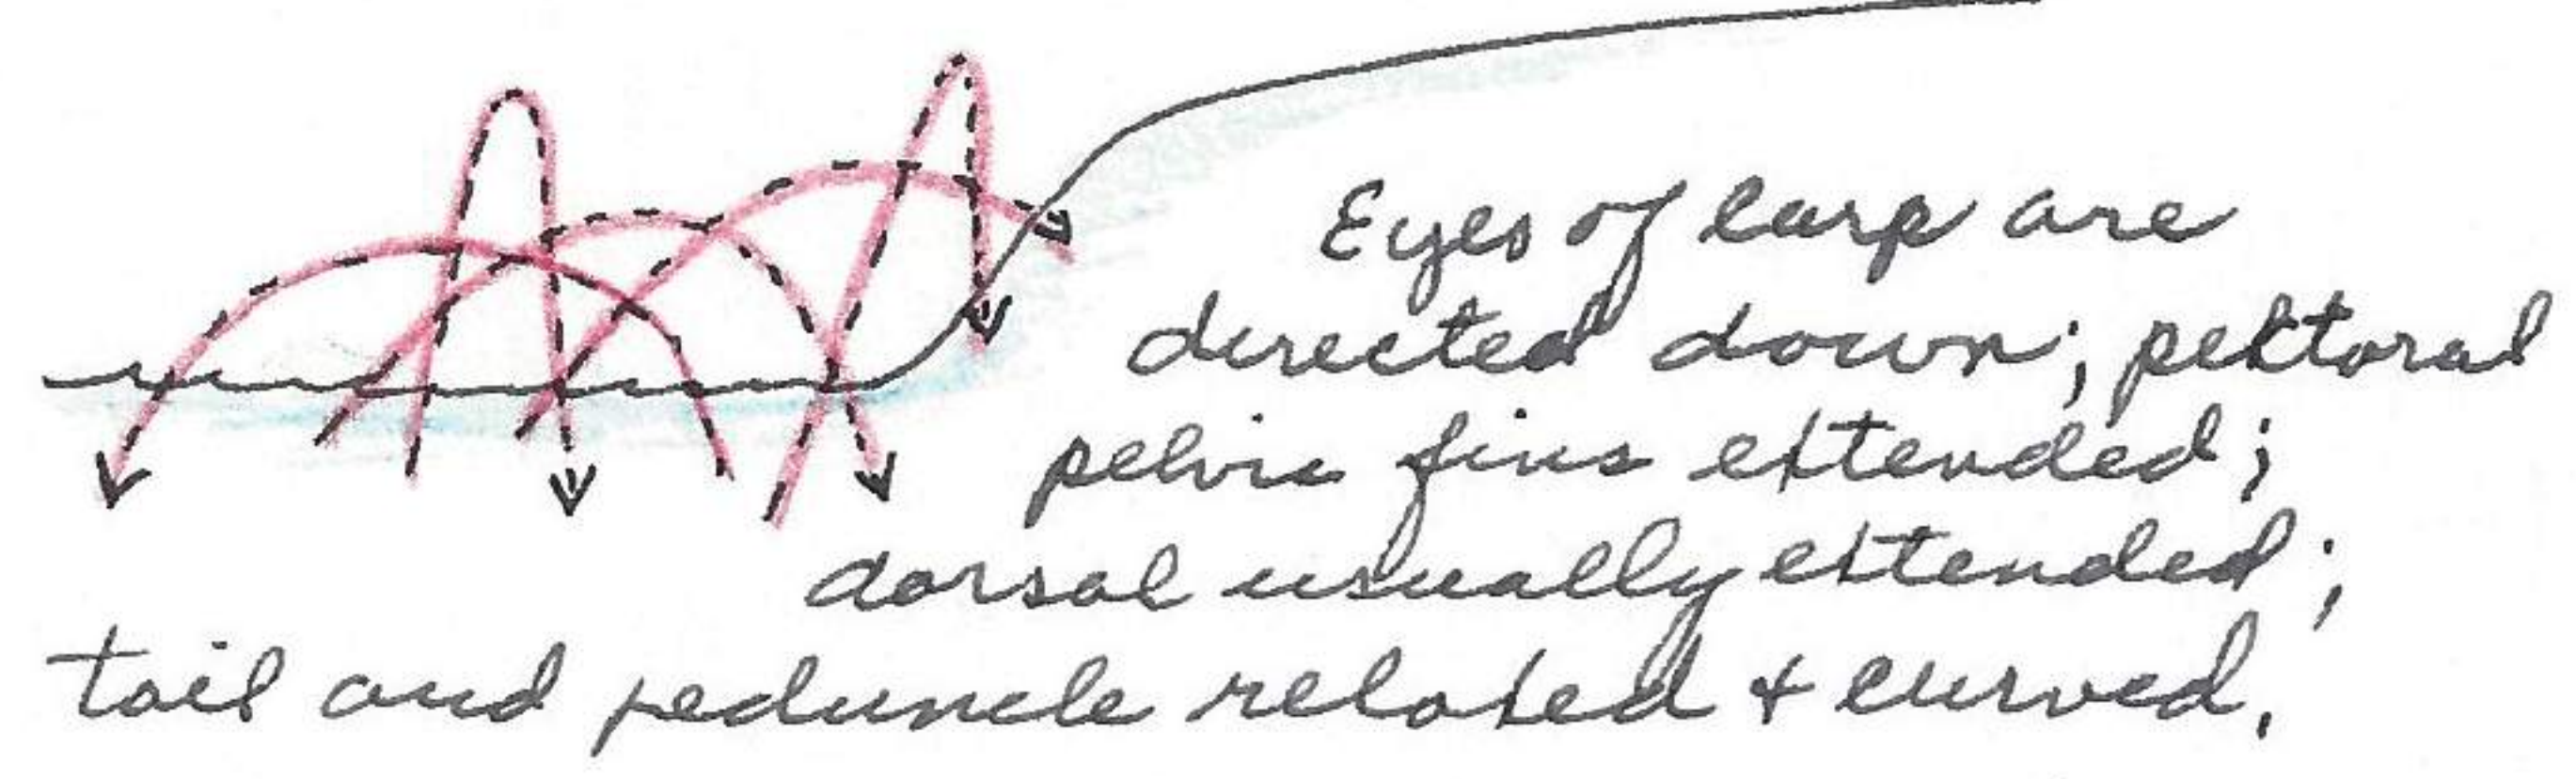 Eyes of carp are
directed down; pektoral
pelvic fins extended;
dorsal usually extended;
tail and peduncle relaxed + curved.